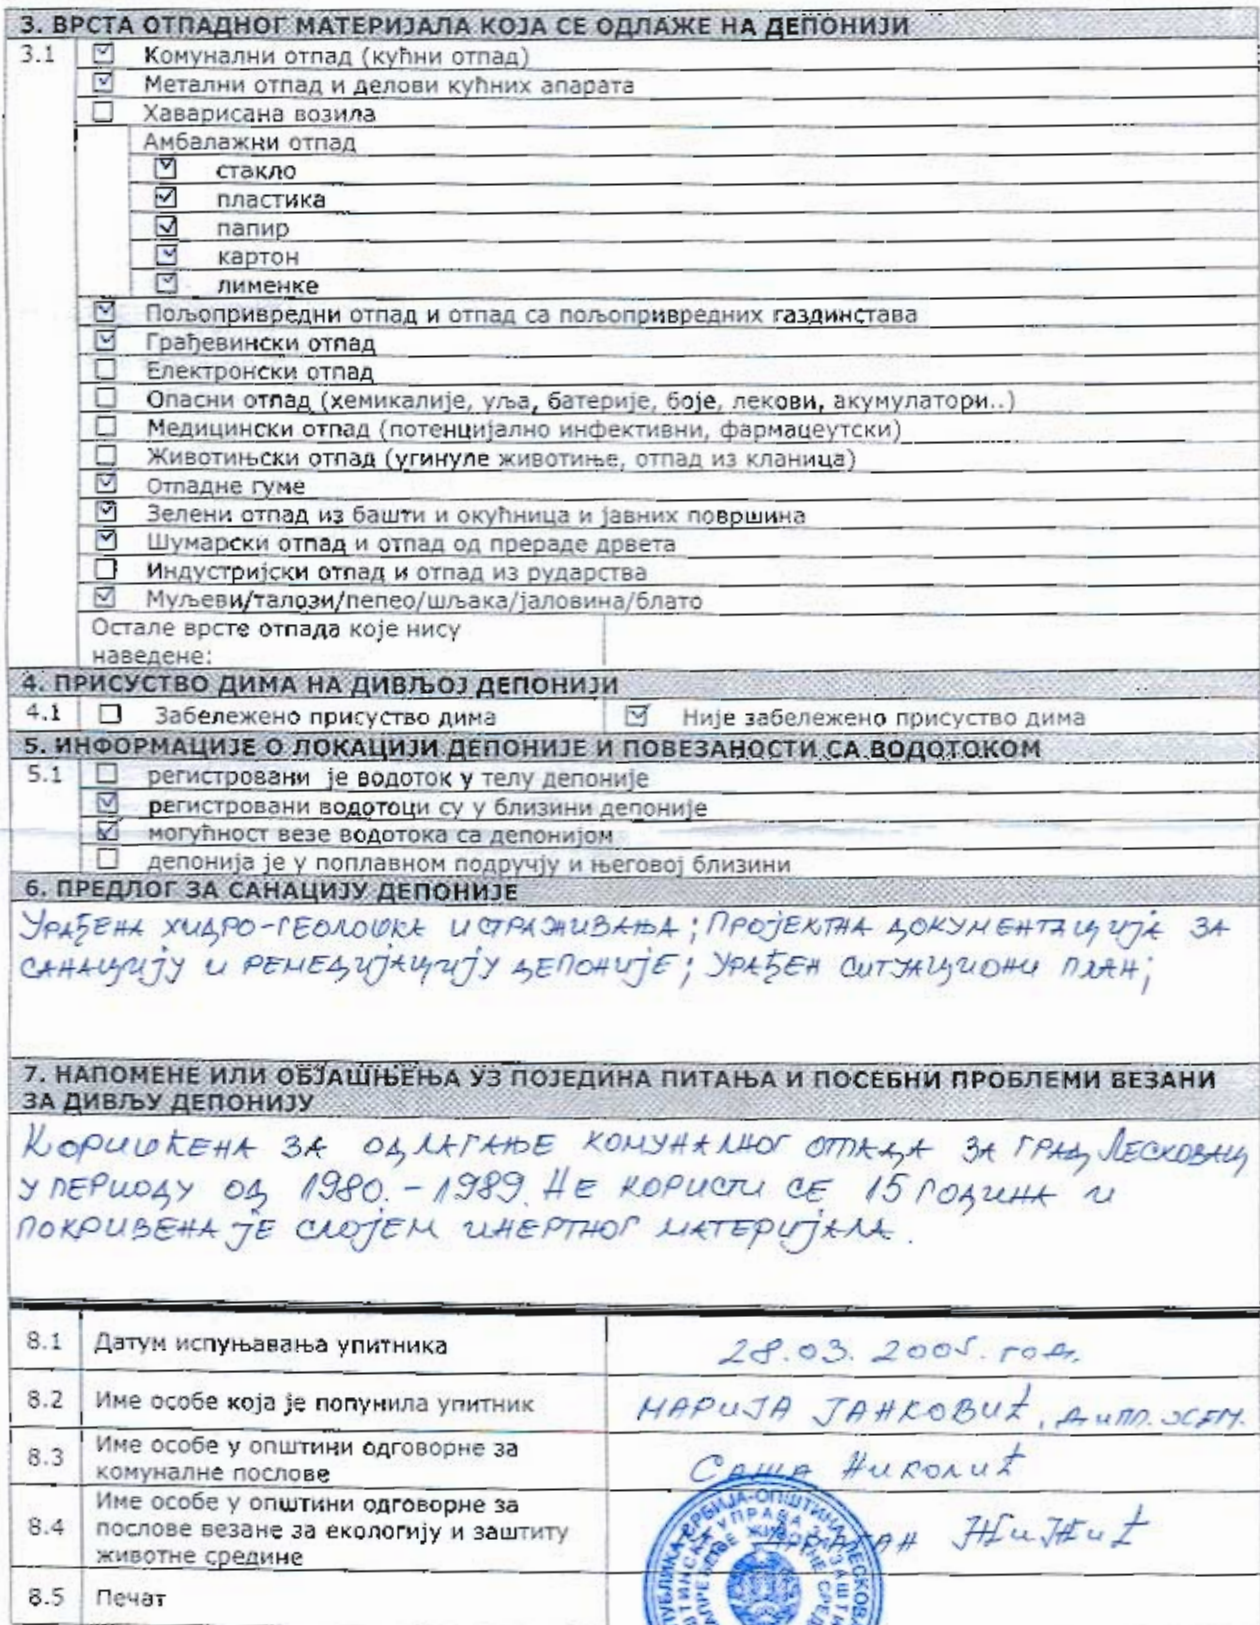 3. ВРСТА ОТПАДНОГ МАТЕРИЈАЛА КОЈА СЕ ОДЛАЖЕ НА ДЕПОНИЈИ
3.1 ☑ Комунални отпад (кућни отпад)
☑ Метални отпад и делови кућних апарата
☐ Хаварисана возила
Амбалажни отпад
☑ стакло
☑ пластика
☑ папир
☑ картон
☑ лименке
☑ Пољопривредни отпад и отпад са пољопривредних газдинстава
☑ Грађевински отпад
☐ Електронски отпад
☐ Опасни отпад (хемикалије, уља, батерије, боје, лекови, акумулатори..)
☐ Медицински отпад (потенцијално инфективни, фармацеутски)
☐ Животињски отпад (угинуле животиње, отпад из кланица)
☑ Отпадне гуме
☑ Зелени отпад из башти и окућница и јавних површина
☑ Шумарски отпад и отпад од прераде дрвета
☐ Индустријски отпад и отпад из рударства
☑ Муљеви/талози/пепео/шљака/јаловина/блато
Остале врсте отпада које нису
наведене:
4. ПРИСУСТВО ДИМА НА ДИВЉОЈ ДЕПОНИЈИ
4.1 ☐ Забележено присуство дима ☑ Није забележено присуство дима
5. ИНФОРМАЦИЈЕ О ЛОКАЦИЈИ ДЕПОНИЈЕ И ПОВЕЗАНОСТИ СА ВОДОТОКОМ
5.1 ☐ регистровани је водоток у телу депоније
☑ регистровани водотоци су у близини депоније
☑ могућност везе водотока са депонијом
☐ депонија је у поплавном подручју и његовој близини
6. ПРЕДЛОГ ЗА САНАЦИЈУ ДЕПОНИЈЕ
УРАЂЕНА ХИДРО-ГЕОЛОШКА ИСТРАЖИВАЊА; ПРОЈЕКТНА ДОКУМЕНТАЦИЈА ЗА
САНАЦИЈУ И РЕМЕДИЈАЦИЈУ ДЕПОНИЈЕ; УРАЂЕН СИТУАЦИОНИ ПЛАН;
7. НАПОМЕНЕ ИЛИ ОБЈАШЊЕЊА УЗ ПОЈЕДИНА ПИТАЊА И ПОСЕБНИ ПРОБЛЕМИ ВЕЗАНИ
ЗА ДИВЉУ ДЕПОНИЈУ
КОРИШЋЕНА ЗА ОДЛАГАЊЕ КОМУНАЛНОГ ОТПАДА ЗА ГРАД ЛЕСКОВАЦ
У ПЕРИОДУ ОД 1980. - 1989. НЕ КОРИСТИ СЕ 15 ГОДИНА И
ПОКРИВЕНА ЈЕ СЛОЈЕМ ИНЕРТНОГ МАТЕРИЈАЛА.
8.1 Датум испуњавања упитника 28.03. 2005. год.
8.2 Име особе која је попунила упитник МАРИЈА ЈАНКОВИЋ, ДИПЛ. ХЕМ.
8.3 Име особе у општини одговорне за
комуналне послове САША НИКОЛИЋ
8.4 Име особе у општини одговорне за
послове везане за екологију и заштиту
животне средине ЖИЖИЋ
8.5 Печат